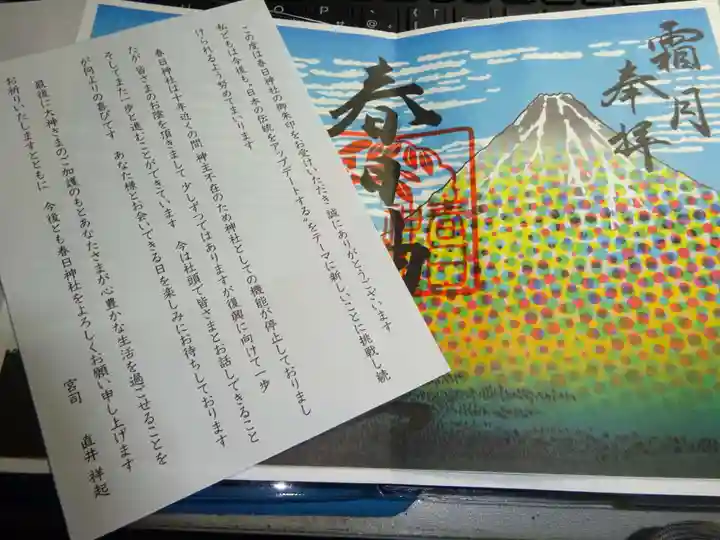 この度は春日神社の御朱印をお受けいただき誠にありがとうございます
私どもは今後も〝日本の伝統をアップデートする〟をテーマに新しいことに挑戦し続
けられるよう努めてまいります
春日神社は十年近くの間 神主不在のため神社としての機能が停止しておりまし
たが 皆さまのお陰を頂きまして 少しずつではありますが復興に向けて一歩
そしてまた一歩と進むことができています 今は社頭で皆さまとお話しできること
が何よりの喜びです あなた様とお会いできる日を楽しみにお待ちしております
最後に大神さまのご加護のもとあなたさまが心豊かな生活を過ごせることを
お祈りいたしますとともに 今後とも春日神社をよろしくお願い申し上げます
宮司 直井 祥起
霜月
奉拝
春日神